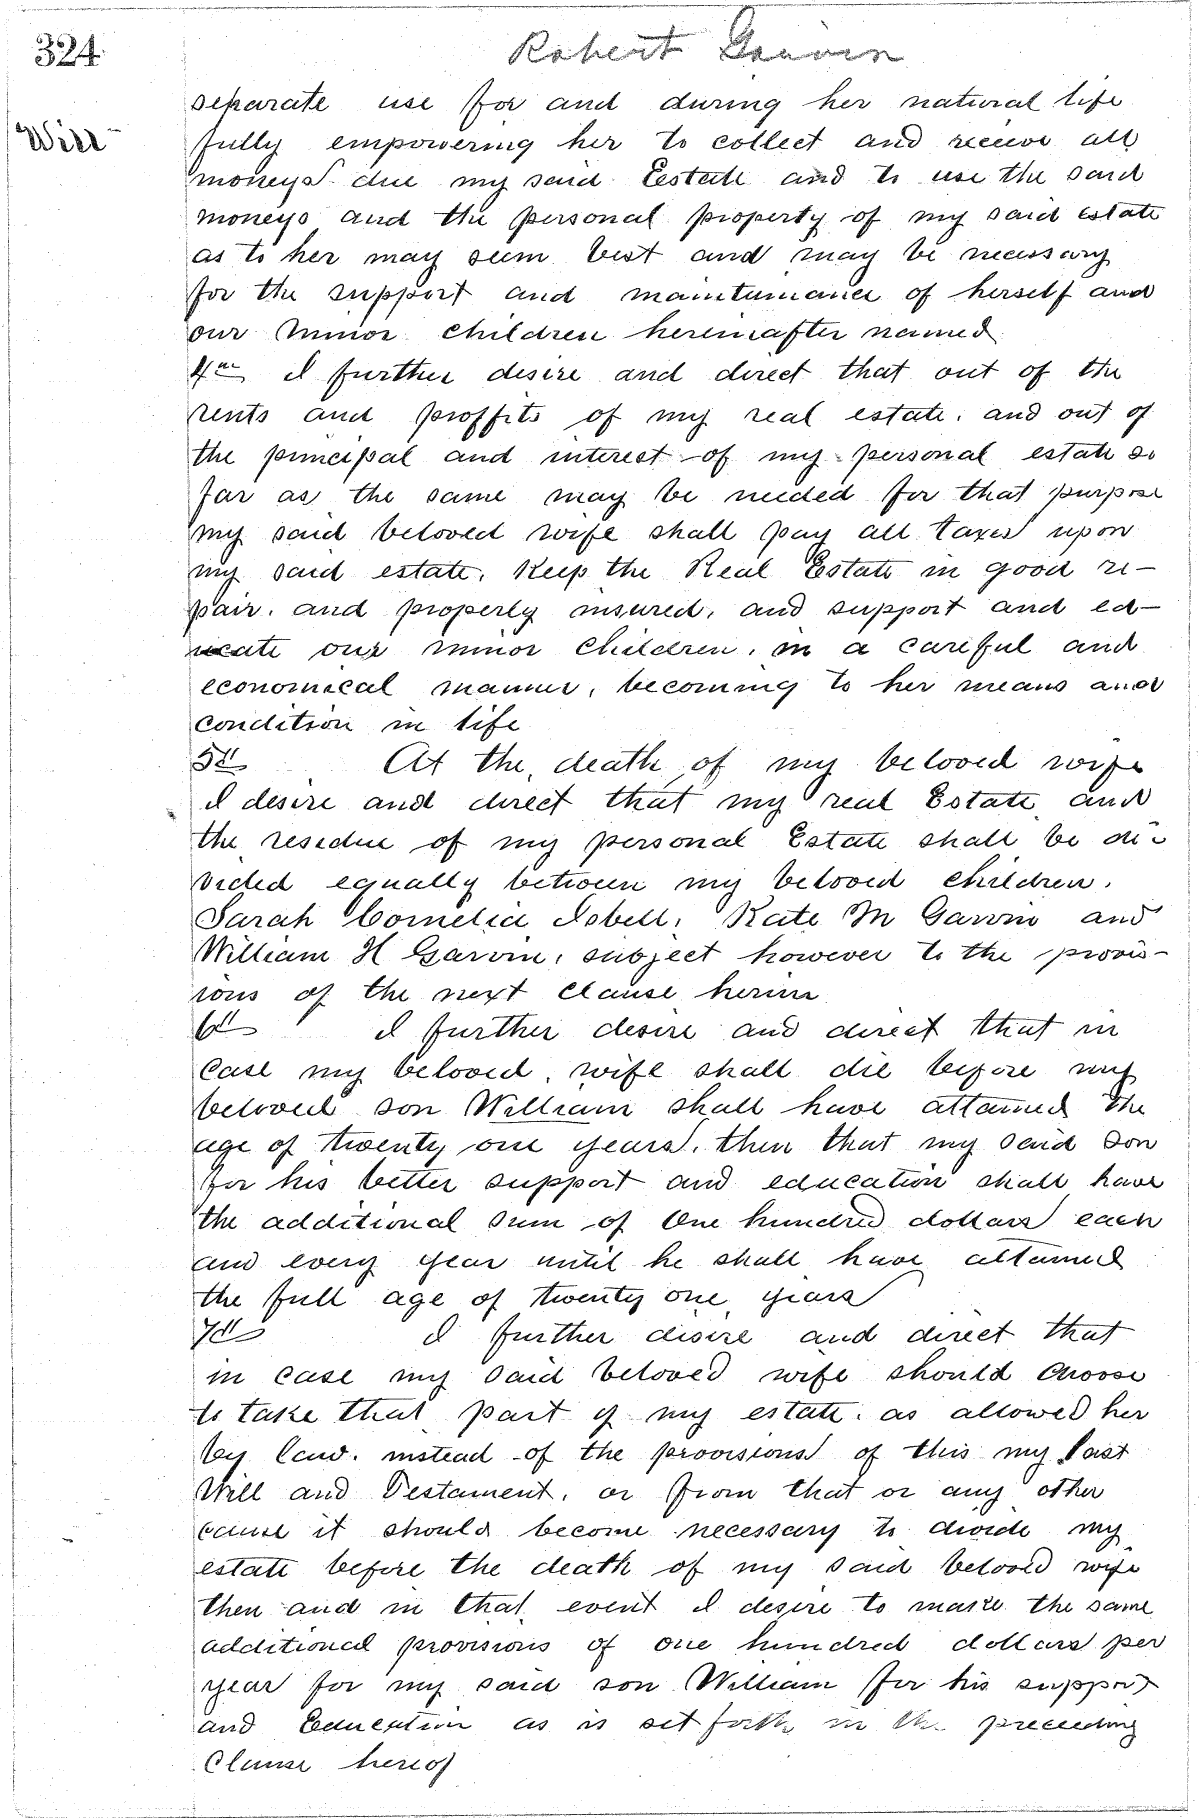 324
Robert Garvin
Will
separate use for and during her natural life
fully empowering her to collect and receive all
moneys due my said Eestate and to use the said
moneys and the personal property of my said estate
as to her may seem best and may be necessary
for the support and maintainance of herself and
our minor children hereinafter named
4th I further desire and direct that out of the
rents and proffits of my real estate. and out of
the principal and interest of my personal estate so
far as the same may be needed for that purpose
my said beloved wife shall pay all taxes upon
my said estate, Keep the Real Estate in good re-
pair. and properly insured, and support and ed-
ucate our minor children, in a careful and
economical manner, becoming to her means and
condition in life
5th At the death of my beloved wife
I desire and direct that my real Estate and
the residue of my personal Estate shall be di-
vided equally between my beloved children.
Sarah Cornelia Isbell, Kate M Garvin and
William H Garvin, subject however to the provis-
ions of the next clause herein
6th I further desire and direct that in
Case my beloved wife shall die before my
beloved son William shall have attained the
age of twenty one years, then that my said son
for his better support and education shall have
the additional sum of One hundred dollars each
and every year until he shall have attained
the full age of twenty one years
7th I further disire and direct that
in case my said beloved wife should choose
to take that part of my estate. as allowed her
by law. instead of the provisions of this my last
Will and Testament, or from that or any other
cause it should become necessary to divide my
estate before the death of my said beloved wife
then and in that event I desire to make the same
additional provisions of one hundred dollars per
year for my said son William for his support
and Education as is set forth in the preceeding
Clause hereof